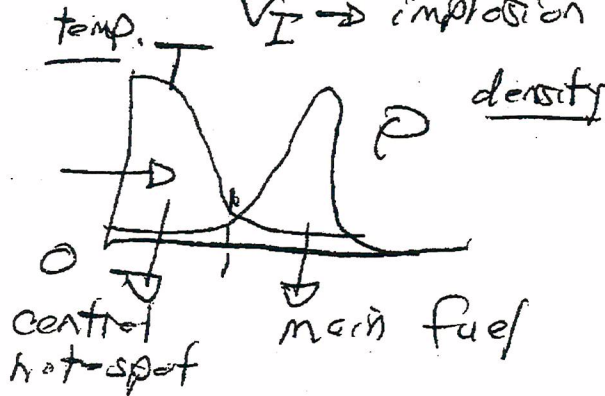 V_I → implosion
temp. T
density
ρ
0
central
hot-spot
main fuel